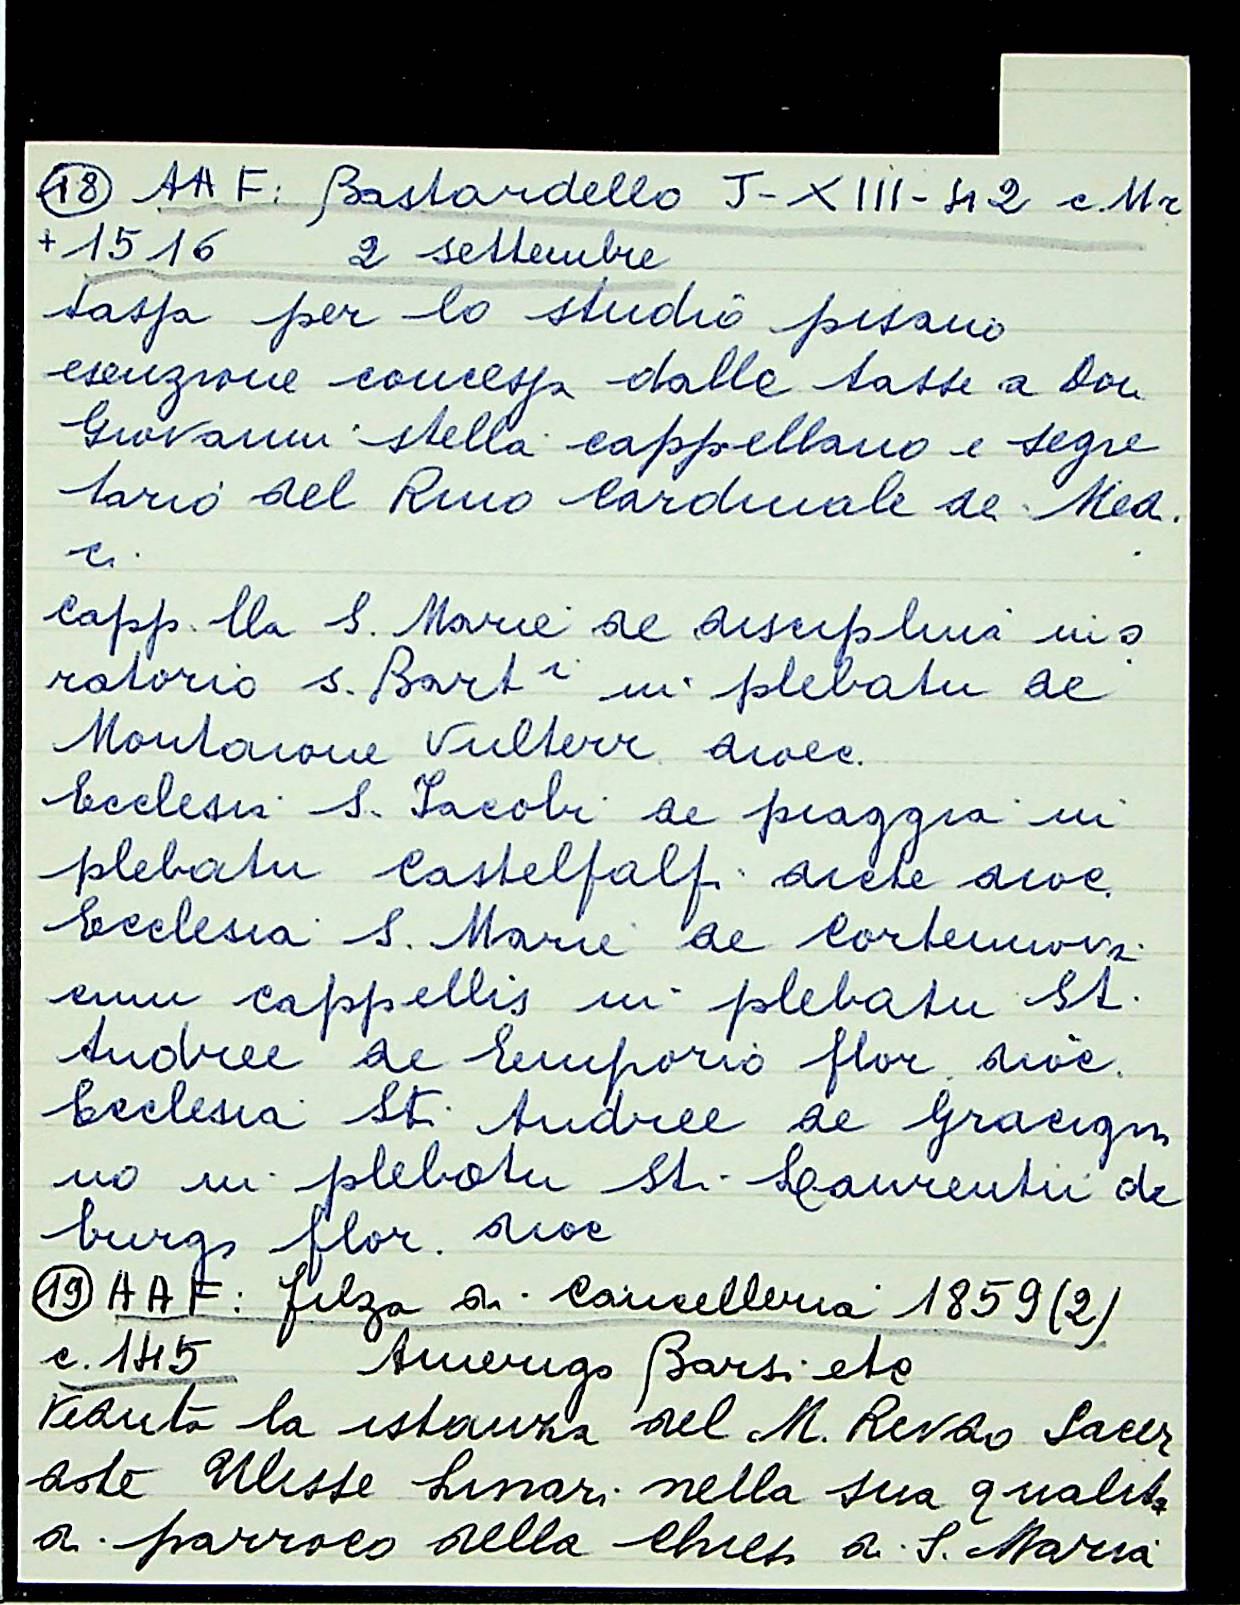 18 AAF: Bastardello J-XIII-42 c.
+ 1516 2 settembre
tassa per lo studio pisano
esenzione concessa dalle tasse a Don
Giovanni stella cappellano e segre
tario del Rmo Cardinale de Med.
ci.
Capp.lla S. Marie de disciplina in o
ratorio s. Bart i in plebatu de
Montaione Vulterr. dioec.
Ecclesia S. Iacobi de piaggia in
plebatu Castelfalfi dicte dioc.
Ecclesia S. Marie de Cortennova
cum cappellis in plebatu St.
Andree de Emporio flor. dioc.
Ecclesia St. Andree de Gracign
no in plebatu St. Laurentii de
burgo flor. dioc
19 AAF: filza di Cancelleria 1859(2)
c. 145 Amerigo Barsi etc
Veduta la istanza del M. Revdo Sacer
dote Ulisse nella sua qualità
di parroco della Chiesa di S. Maria